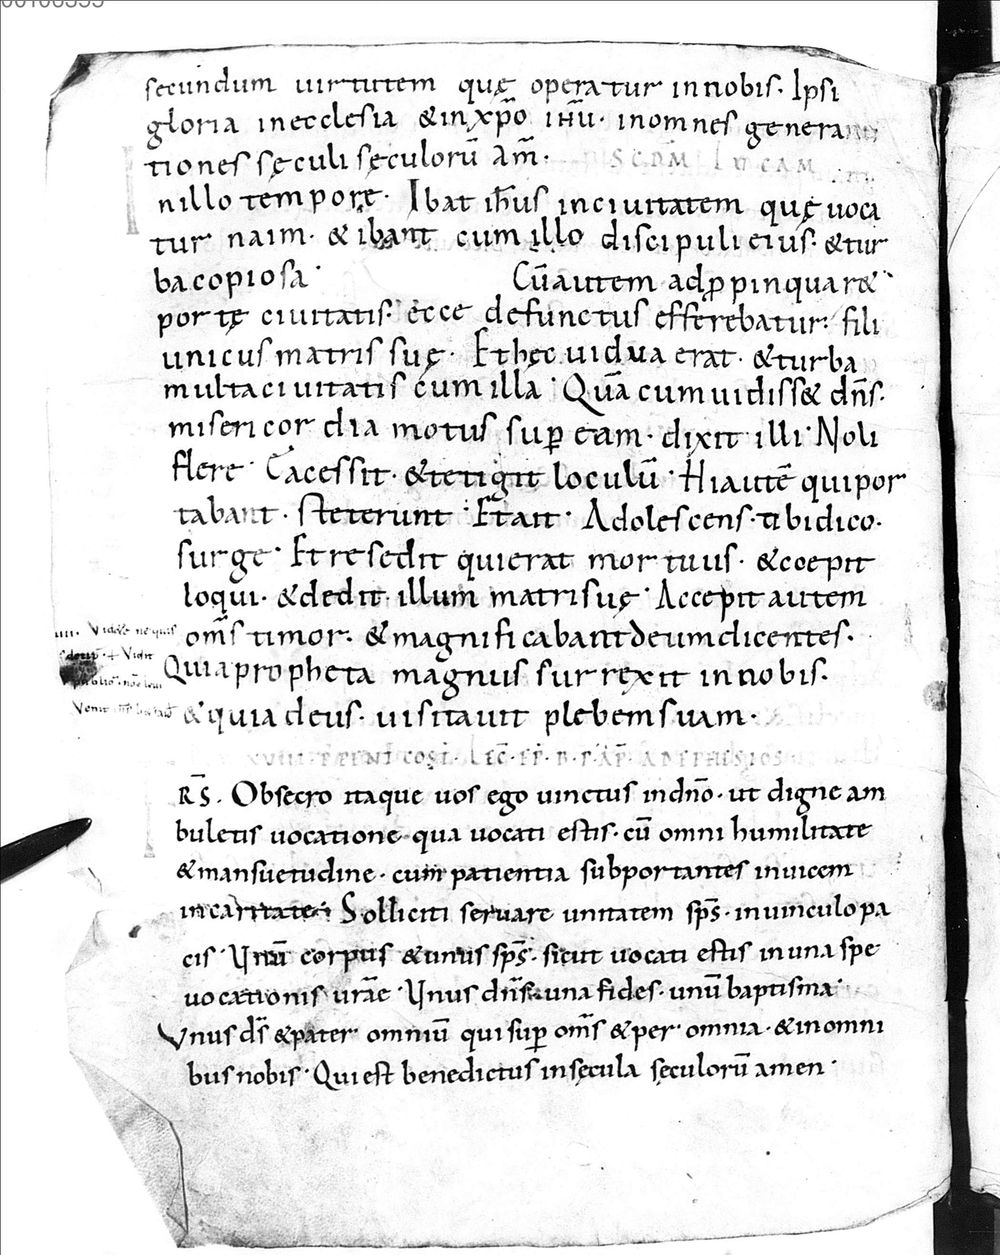 secundum uirtutem quę operatur innobis· Ipsi
gloria inecclesia &inxp̄o ihū· inomnes genera
tiones sęculi sęculorū am̄·
SCDM LUCAM
nillo tempore· Ibat ih̄us inciuitatem quę uoca
tur naim· & ibant cum illo discipuli eius· &tur
bacopiosa· Cū autem adp̱pinquar&
portę ciuitatis· ecce defunctus efferebatur· fili
unicus matris suę· Ethęc uidua erat· &turba
multaciuitatis cum illa· Quā cum uidiss& dn̄s·
misericordia motus sup̱ eam· dixit illi· Noli
flere· Cacessit· &tetigit loculū· Hiautē quipor
tabant· steterunt· Etait· Adolescens· tibidico·
surge· Etresedit quierat mortuus· &coepit
loqui· &dedit illum matrisuę· Accepit autem
om̄s timor· &magnificabantdeumdicentes·
Quiapropheta magnus surrexit innobis·
&quia deus· uisitauit plebemsuam·
XVIII· LEC· EP· B· P· AP· AD EPHESIOS
R̄S̄· Obsecro itaque uos ego uinctus indn̄o· ut digne am
buletis uocatione· qua uocati estis· cū omni humilitate
&mansuetudine· cum patientia subportantes inuicem
incaritate· Solliciti seruare unitatem sp̄s· inuinculo pa
cis· Unū corpus &unus sp̄s· sicut uocati estis inuna spe
uocationis urāe· Unus dn̄s· una fides· unū baptisma·
Unus ds̄ &pater· omniū quisup̱ om̄s &per· omnia· &inomni
busnobis· Quiest benedictus insęcula sęculorū amen·